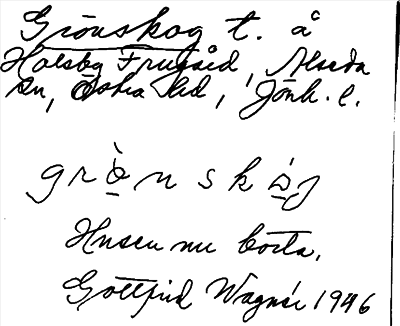 Grönskog t. å
Holsby Frugård, Alseda
sn, Östra hd, Jönk. l.
grὼ̲nskά̲g
Husen nu borta.
Gottfrid Wagnér 1946